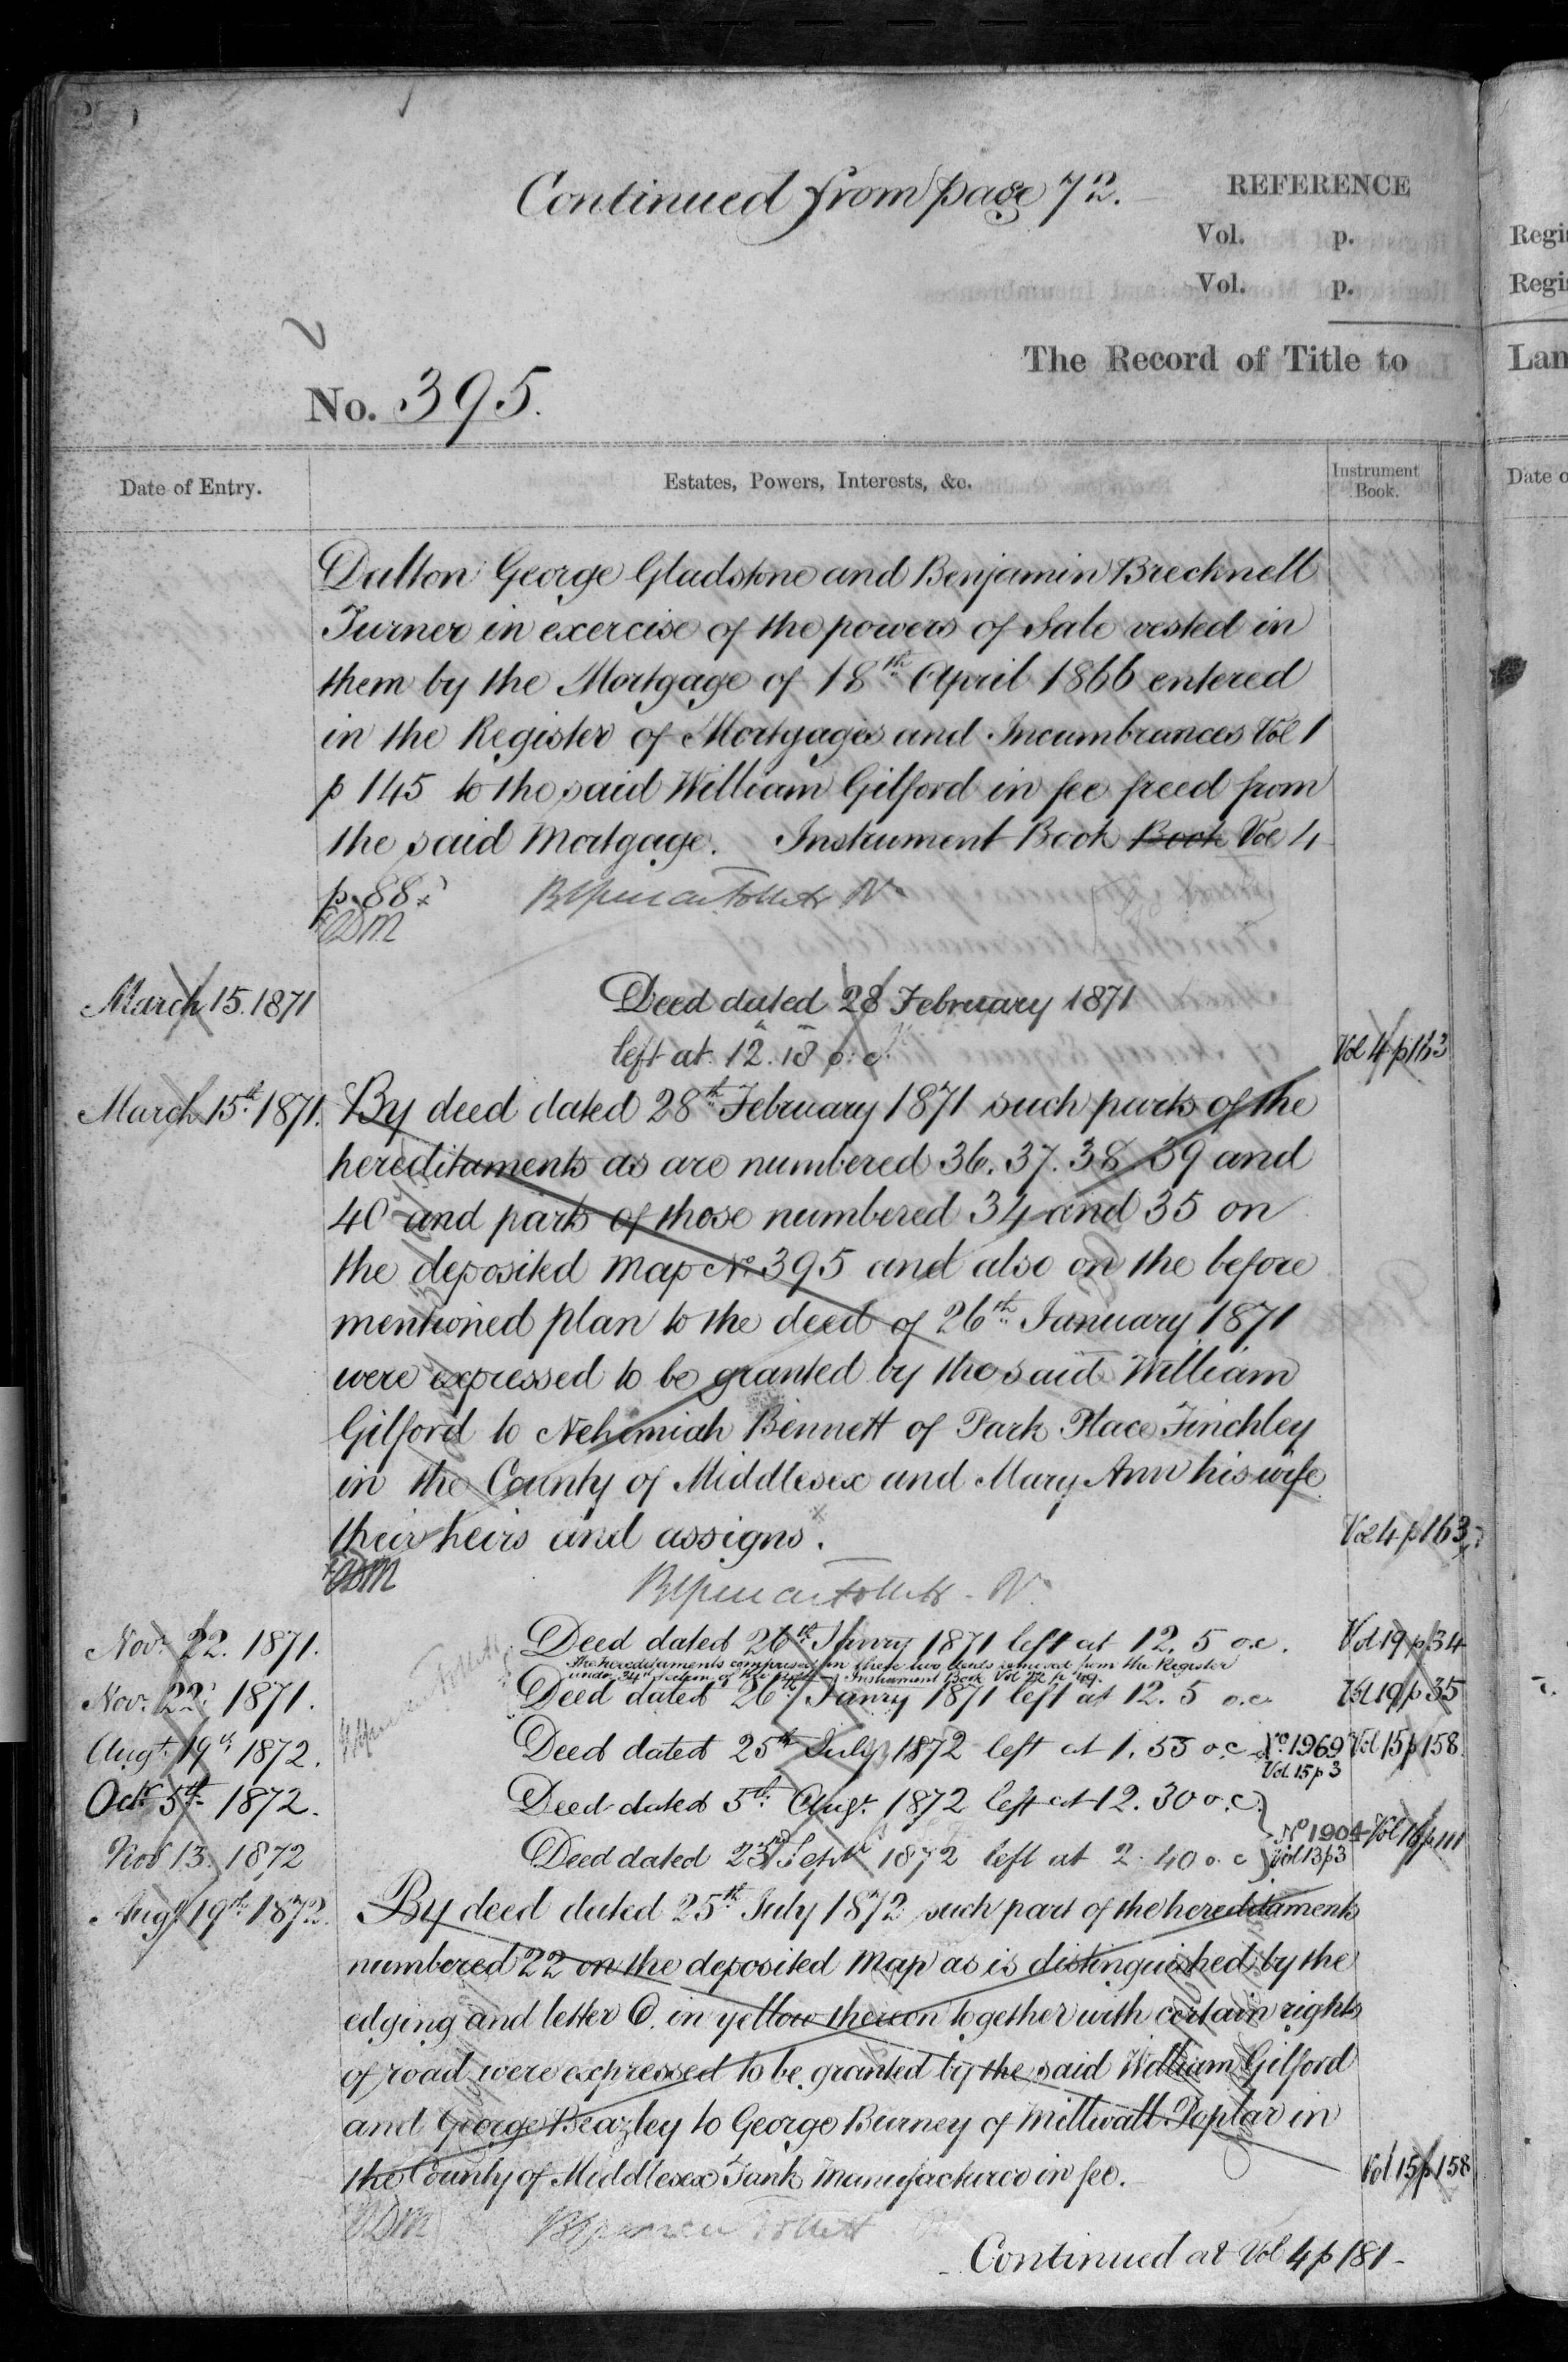 Continued from page 72.
REFERENCE
Vol. p.
Vol. p.
The Record of Title to
No. 395.
Date of Entry. Estates, Powers, Interests, &c. Instrument Book.
Dalton George Gladstone and Benjamin Brecknell
Turner in exercise of the powers of Sale vested in
them by the Mortgage of 18th April 1866 entered
in the Register of Mortgages and Incumbrances Vol 1
p 145 to the said William Gilford in fee freed from
the said Mortgage. Instrument Book Book Vol 4
p. 88.
March 15. 1871 Deed dated 28 February 1871
left at 12. 18 o. c. Vol 4 p 163
March 15th 1871. By deed dated 28th February 1871 such parts of the
hereditaments as are numbered 36. 37. 38. 39 and
40 and parts of those numbered 34 and 35 on
the deposited Map No 395 and also on the before
mentioned plan to the deed of 26th January 1871
were expressed to be granted by the said William
Gilford to Nehemiah Bennett of Park Place Finchley
in the County of Middlesex and Mary Ann his wife
their heirs and assigns. Vol 4 p 163
Nov. 22. 1871. Deed dated 26th Janry 1871 left at 12. 5 o.c. Vol 19 p 34
The hereditaments comprised in these two deeds removed from the Register
under 34th section of the Instrument Book Vol
Nov. 22. 1871. Deed dated 26th Janry 1871 left at 12. 5 o.c. Vol 19 p 35
Augt 19th 1872. Deed dated 25th July 1872 left at 1. 55 o.c. No 1969 Vol 15 p 158
Vol 15 p 3
Oct 5th 1872. Deed dated 5th Augt. 1872 left at 12. 30 o.c.
No 1904 Vol 16 p 111
Nov 13. 1872 Deed dated 23rd Septr 1872 left at 2. 40 o. c Vol 13 p 3
Augt 19th 1872. By deed dated 25th July 1872 such part of the hereditaments
numbered 22 on the deposited Map as is distinguished by the
edging and letter C. in yellow thereon together with certain rights
of road were expressed to be granted by the said William Gilford
and George Beazley to George Burney of Millwall Poplar in
the County of Middlesex Tank Manufacturer in fee. Vol 15 p 158
Continued at Vol 4 p 181
Regi
Regi
Lan
Date o